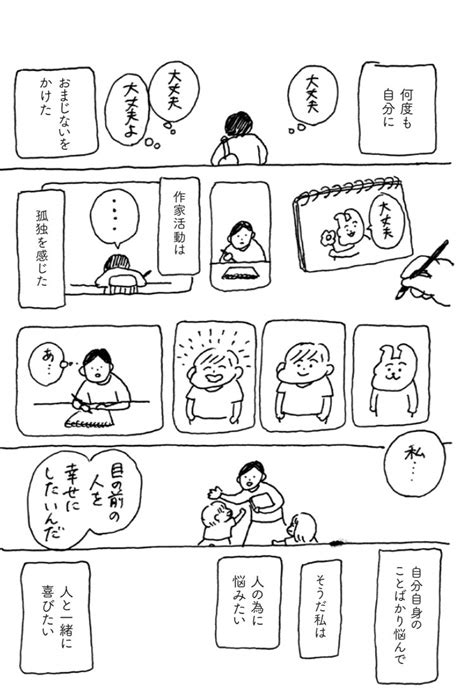 何度も
自分に
大丈夫
大丈夫
大丈夫よ
おまじないを
かけた
大丈夫
作家活動は
・・・・
孤独を感じた
あ…
私…
目の前の
人を
幸せに
したいんだ
自分自身の
ことばかり悩んで
そうだ私は
人の為に
悩みたい
人と一緒に
喜びたい